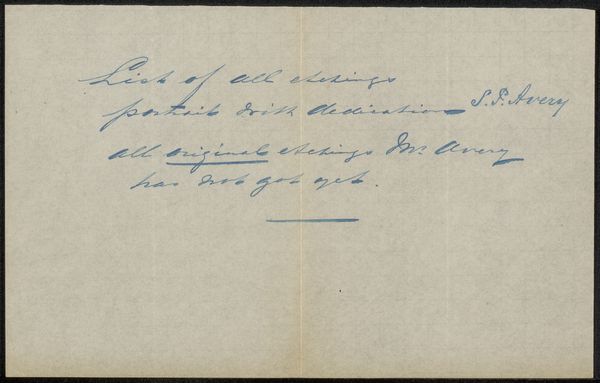 List of all etchings
portrait with dedication S. P. Avery
all original etchings Mr. Avery
has not got yet.